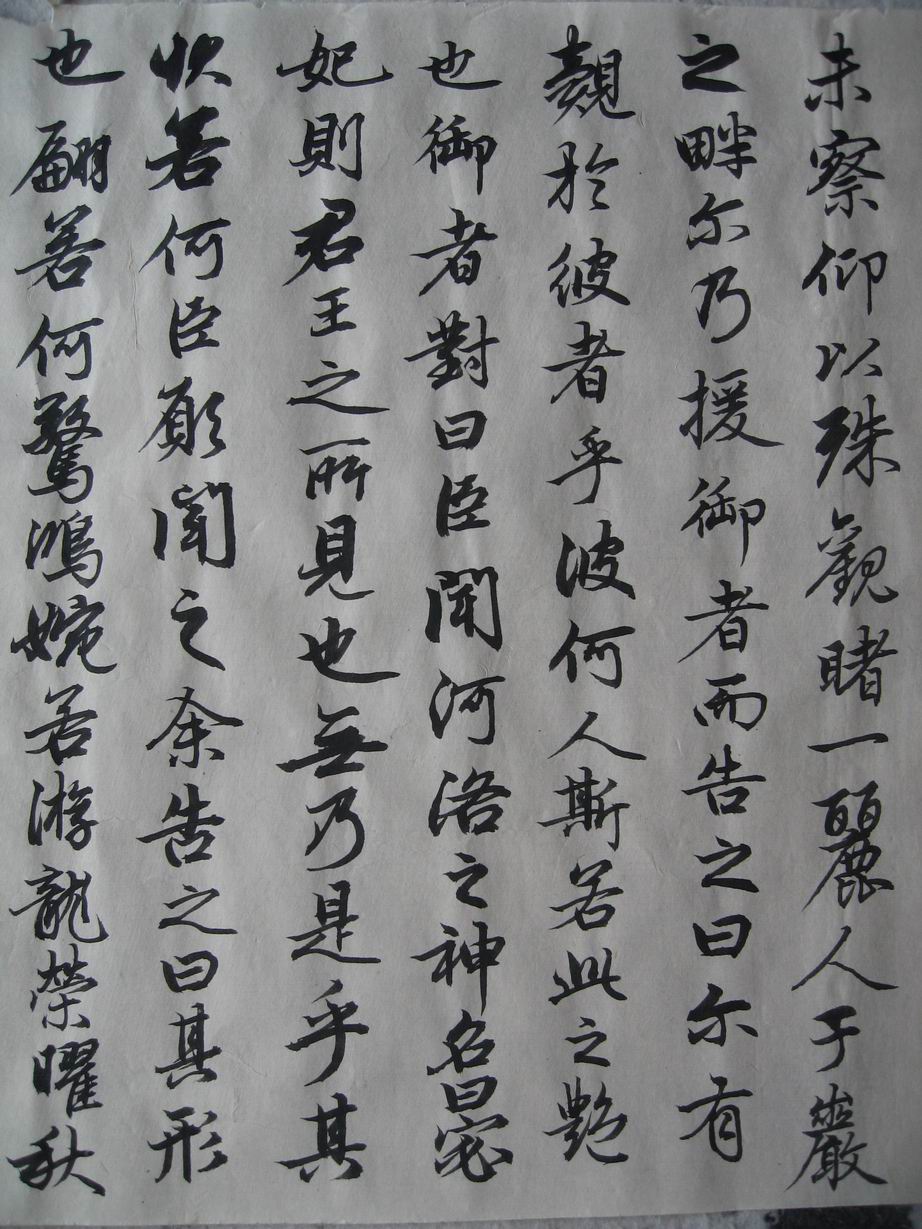 未察仰以殊觀睹一麗人于巖
之畔尔乃援御者而告之曰尔有
覿於彼者乎波何人斯若此之艷
也御者對曰臣聞河洛之神名曰宓
妃則君王之所見也無乃是乎其
狀若何臣願聞之余告之曰其形
也翩若何驚鴻婉若游龍榮曜秋